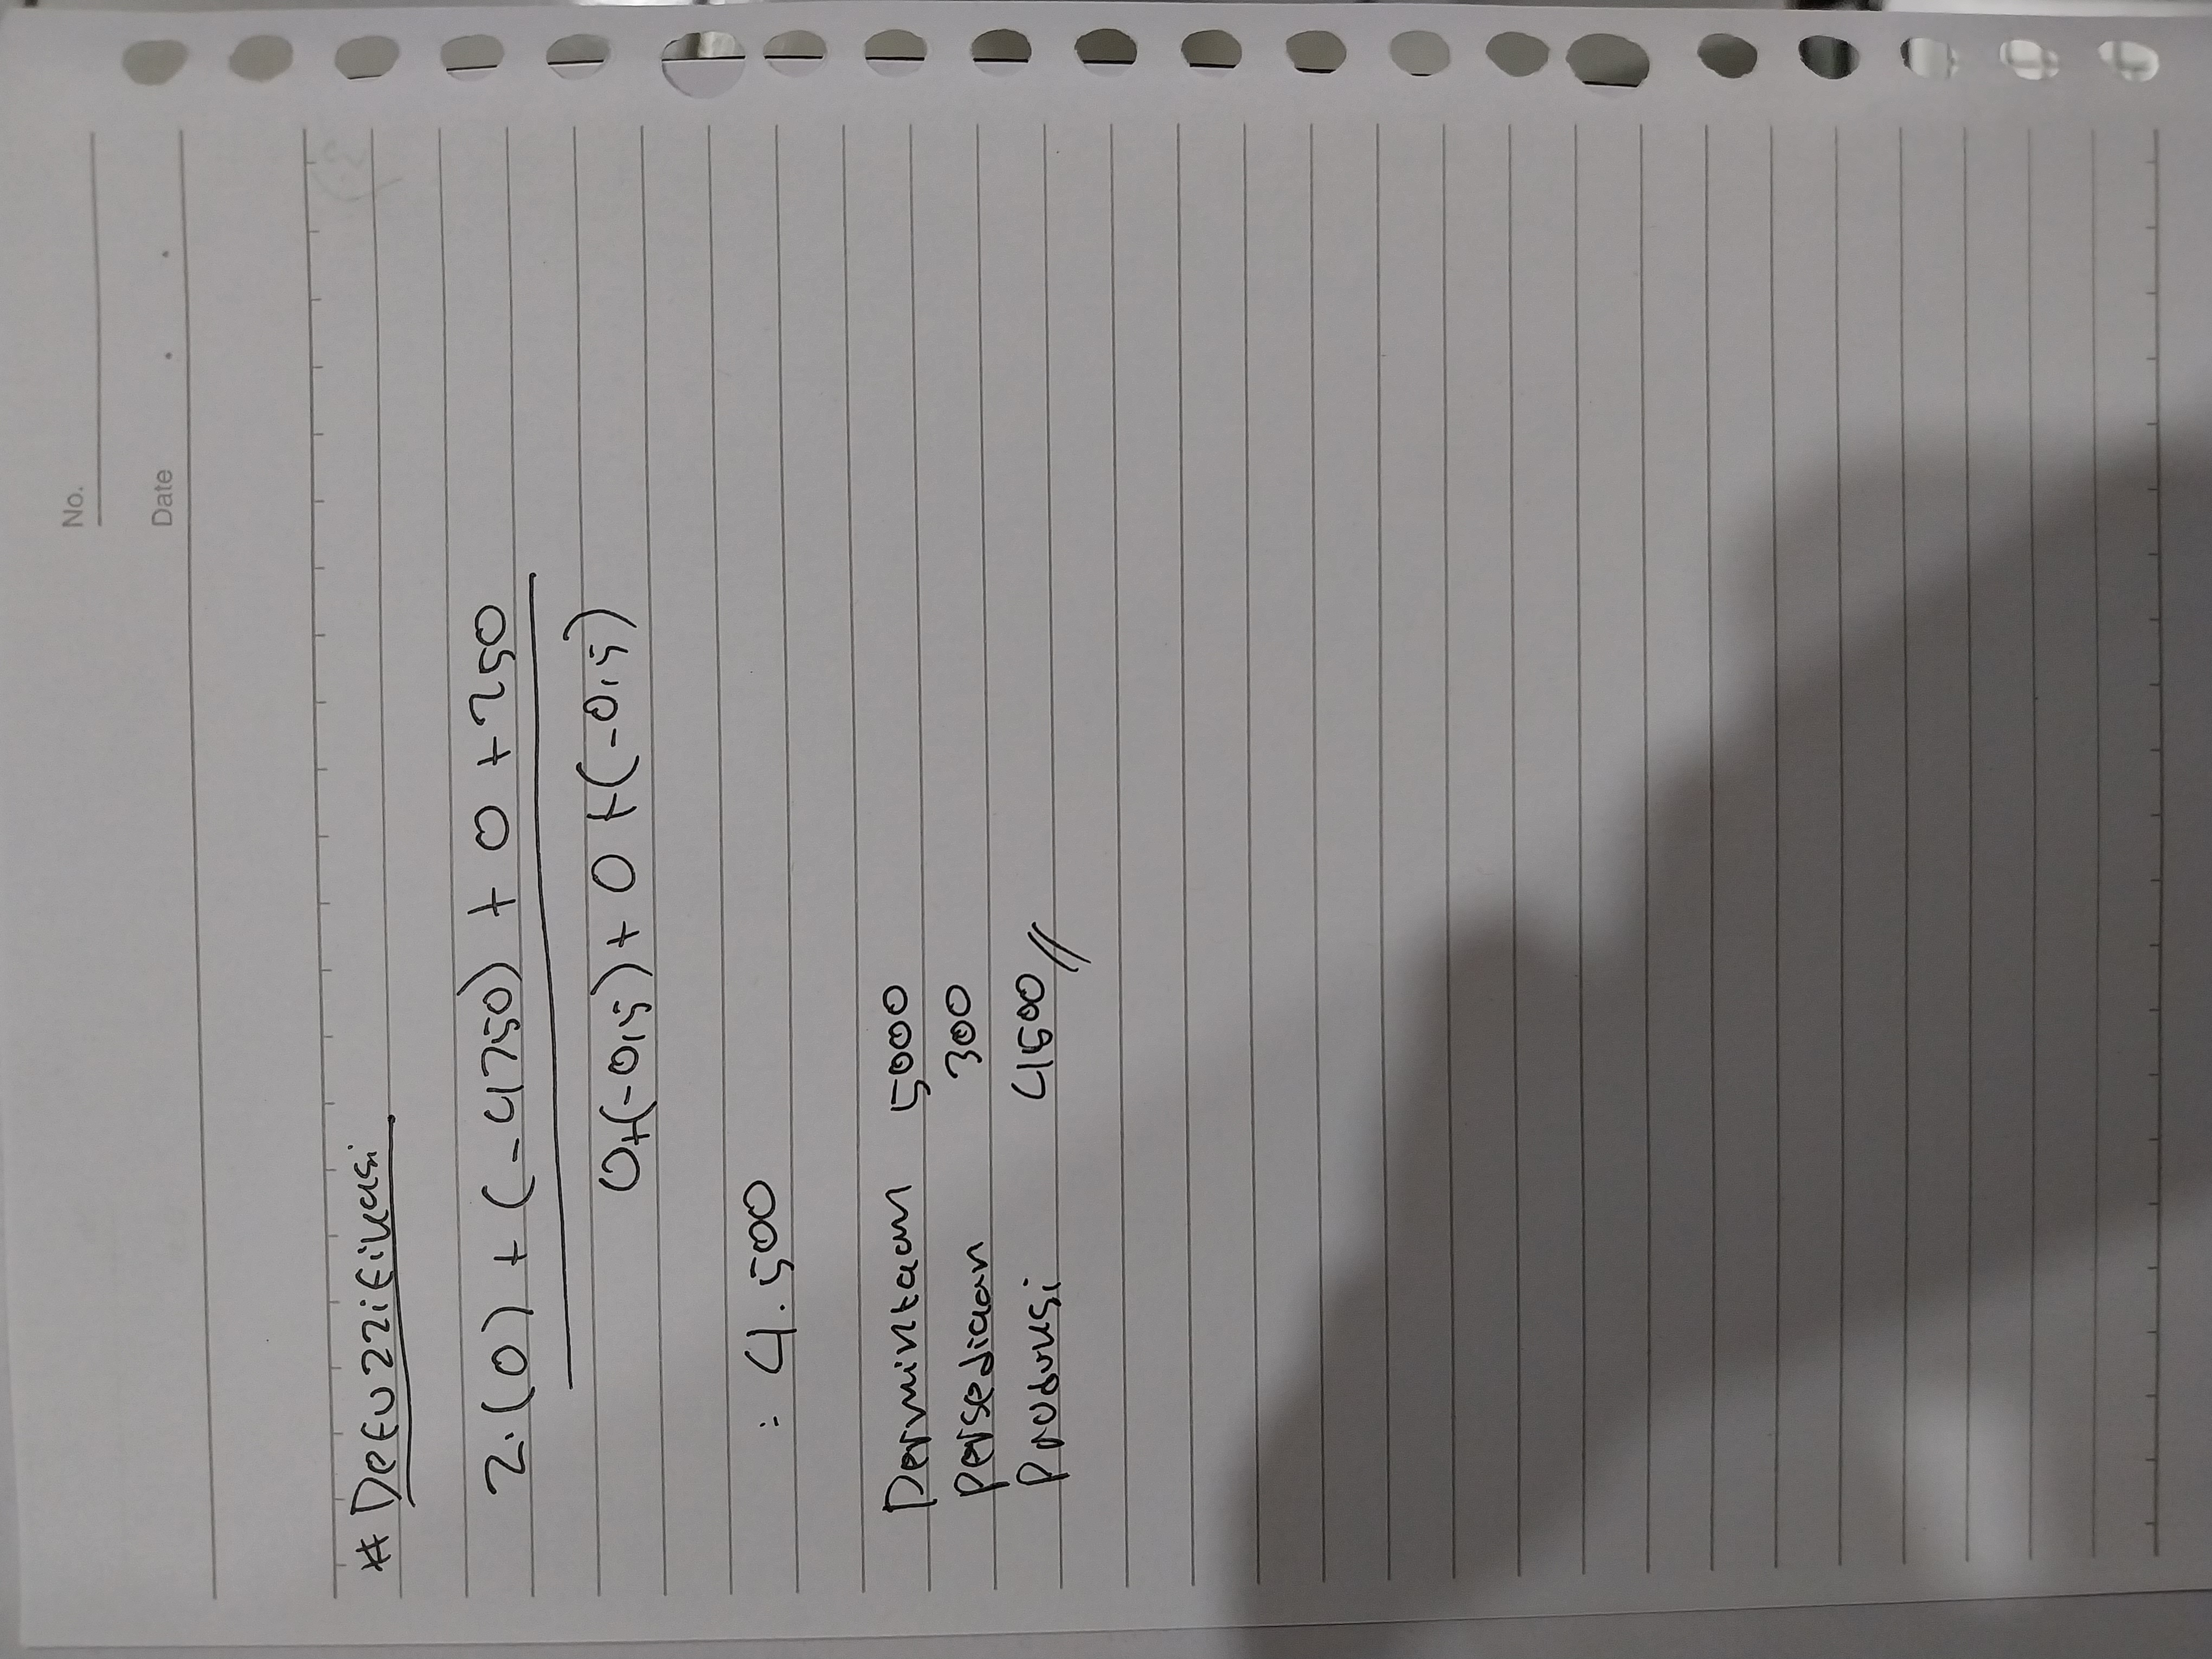 No.
Date
# Defuzzifikasi
Z. (0) + (-4750) + 0 + 250
0+(-0,5) + 0 + (-0,5)
= 4.500
Permintaan 5000
Persediaan 300
Produksi 4500 //